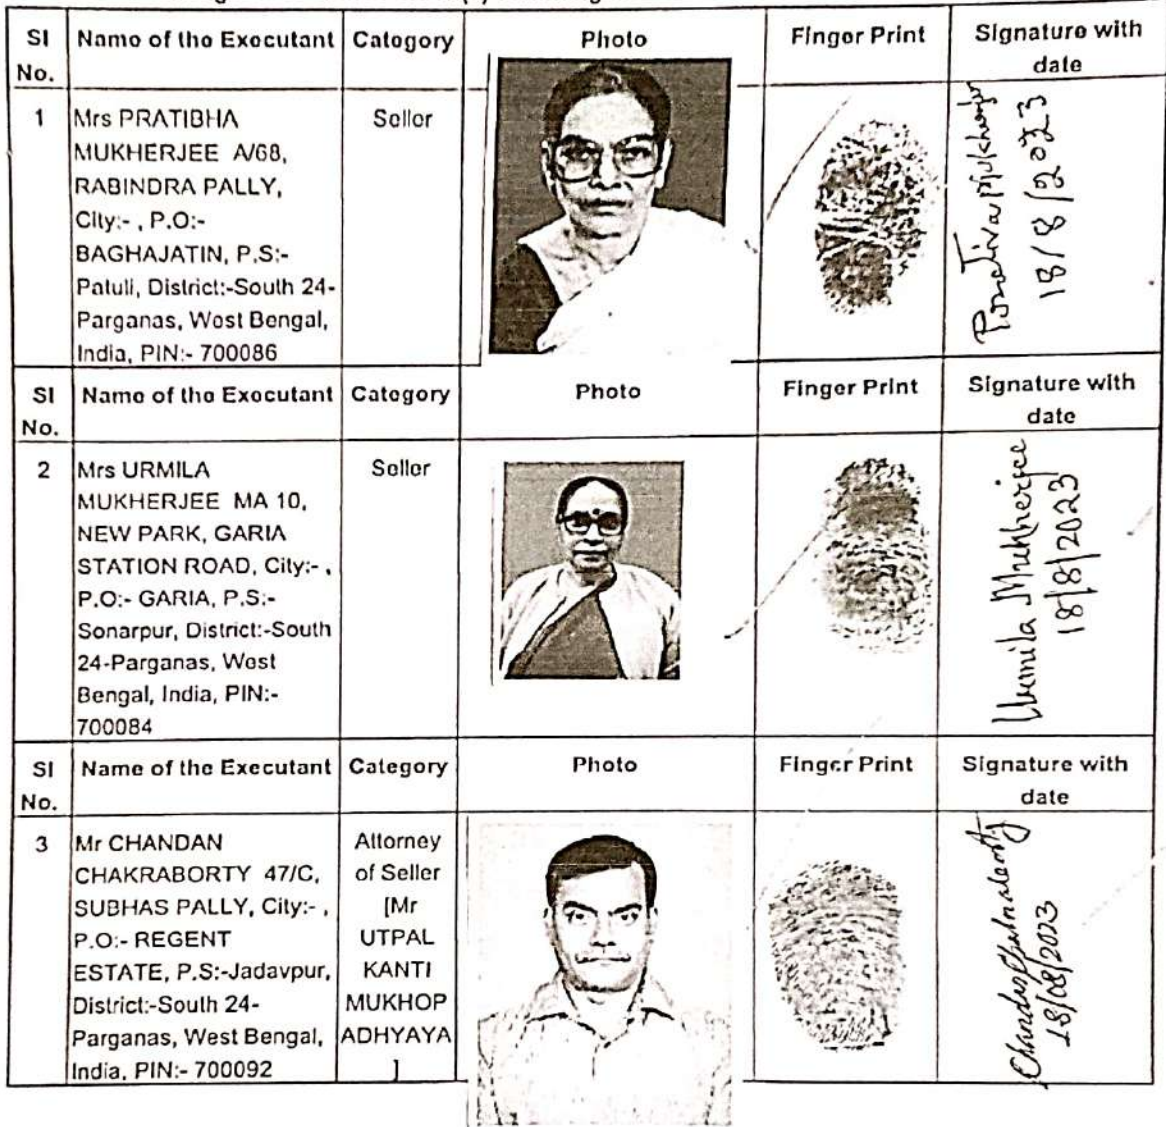 SI No.
Name of the Executant
Category
Photo
Finger Print
Signature with date
1
Mrs PRATIBHA
MUKHERJEE A/68,
RABINDRA PALLY,
City:- , P.O:-
BAGHAJATIN, P.S:-
Patuli, District:-South 24-
Parganas, West Bengal,
India, PIN:- 700086
Seller
18/8/2023
SI No.
Name of the Executant
Category
Photo
Finger Print
Signature with date
2
Mrs URMILA
MUKHERJEE MA 10,
NEW PARK, GARIA
STATION ROAD, City:- ,
P.O:- GARIA, P.S:-
Sonarpur, District:-South
24-Parganas, West
Bengal, India, PIN:-
700084
Seller
Urmila Mukherjee
18/8/2023
SI No.
Name of the Executant
Category
Photo
Finger Print
Signature with date
3
Mr CHANDAN
CHAKRABORTY 47/C,
SUBHAS PALLY, City:- ,
P.O:- REGENT
ESTATE, P.S:-Jadavpur,
District:-South 24-
Parganas, West Bengal,
India, PIN:- 700092
Attorney
of Seller
[Mr
UTPAL
KANTI
MUKHOP
ADHYAYA
]
Chandan Chakraborty
18/08/2023